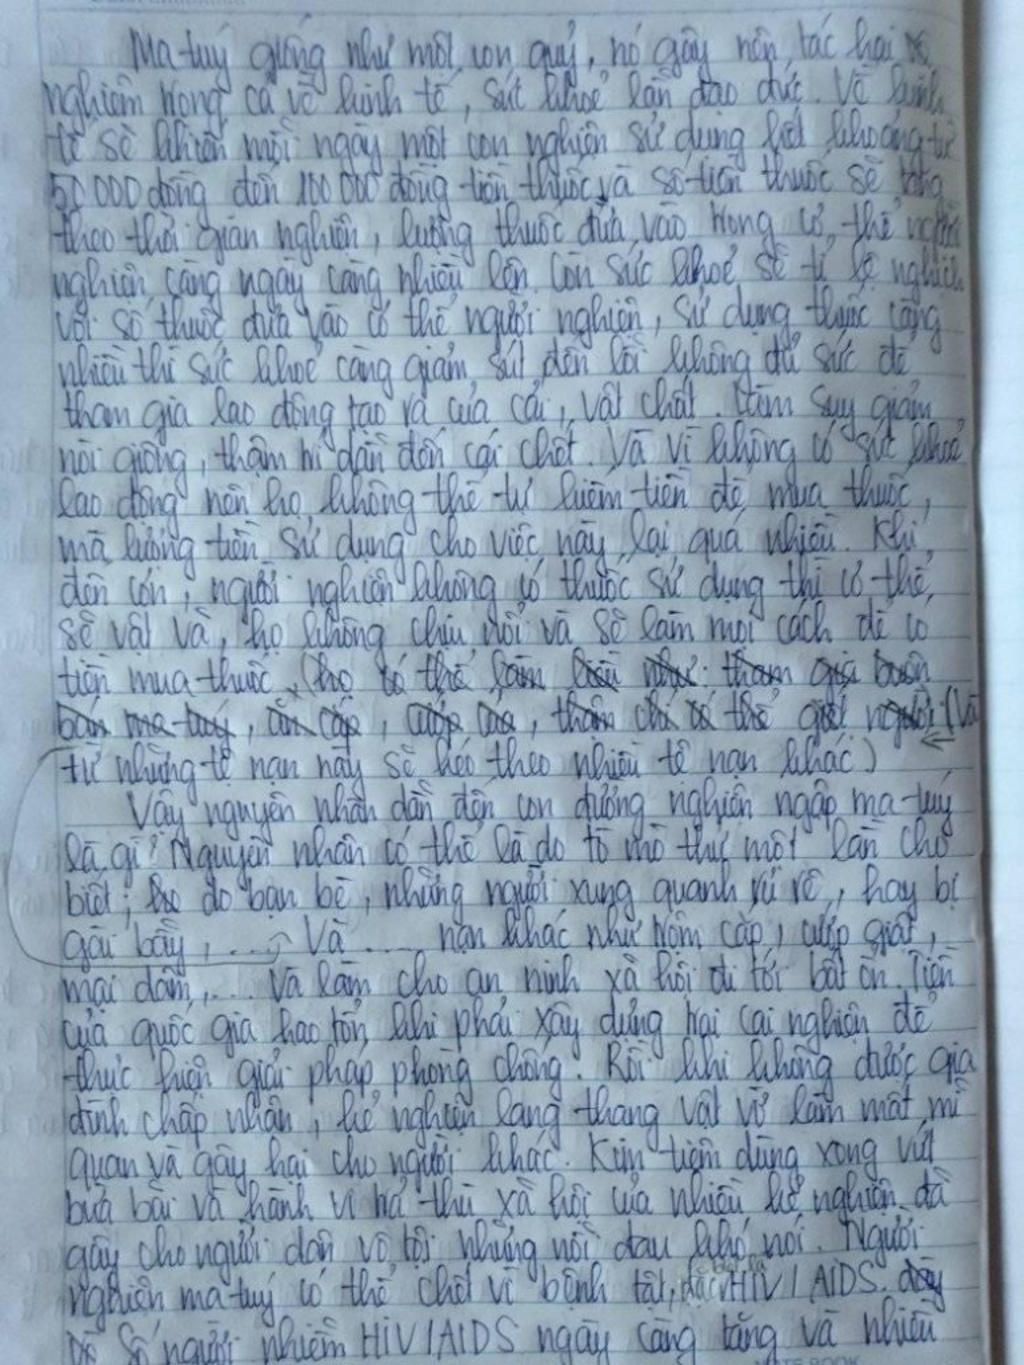 Ma tuý giống như một con quỷ, nó gây nên tác hại
nghiêm trọng cả về kinh tế, sức khoẻ lẫn đạo đức. Về kinh
tế sẽ khiến mỗi ngày một con nghiện sử dụng hết khoảng từ
50 000 đồng đến 100 000 đồng tiền thuốc và số tiền thuốc sẽ tăng
theo thời gian nghiện, lượng thuốc đưa vào trong cơ thể người
nghiện càng ngày càng nhiều lên. Còn sức khoẻ sẽ tỉ lệ nghịch
với số thuốc đưa vào cơ thể người nghiện, sử dụng thuốc càng
nhiều thì sức khoẻ càng giảm sút đến lỗi không đủ sức để
tham gia lao động tạo ra của cải, vật chất. Làm suy giảm
nòi giống, thậm trí dẫn đến cái chết. Và vì không có sức khoẻ
lao động nên họ không thể tự kiếm tiền để mua thuốc,
mà lượng tiền sử dụng cho việc này lại quá nhiều. Khi
đến cơn, người nghiện không có thuốc sử dụng thì cơ thể
sẽ vật vã, họ không chịu nổi và sẽ làm mọi cách để có
tiền mua thuốc, (họ có thể làm liều như: tham gia buôn
bán ma tuý, ăn cắp, cướp của, thậm chí có thể giết người (Và
từ những tệ nạn này sẽ kéo theo nhiều tệ nạn khác)
Vậy nguyên nhân dẫn đến con đường nghiện ngập ma tuý
là gì? Nguyên nhân có thể là do tò mò thử một lần cho
biết; do bạn bè, những người xung quanh rủ rê, hay bị
gài bẫy, .... Và .... nạn khác như trộm cắp, cướp giật,
mại dâm,... Và làm cho an ninh xã hội đi tới bất ổn. Tiền
của quốc gia hao tổn khi phải xây dựng trại cai nghiện để
thực hiện giải pháp phòng chống. Rồi khi không được gia
đình chấp nhận, kẻ nghiện lang thang vật vờ làm mất mĩ
quan và gây hại cho người khác. Kim tiêm dùng xong vứt
bừa bãi và hành vi trả thù xã hội của nhiều kẻ nghiện đã
gây cho người dân vô tội những nỗi đau khó nói. Người
nghiện ma tuý có thể chết vì bệnh tật, đặc biệt là HIV/AIDS.
Số người nhiễm HIV/AIDS ngày càng tăng và nhiều